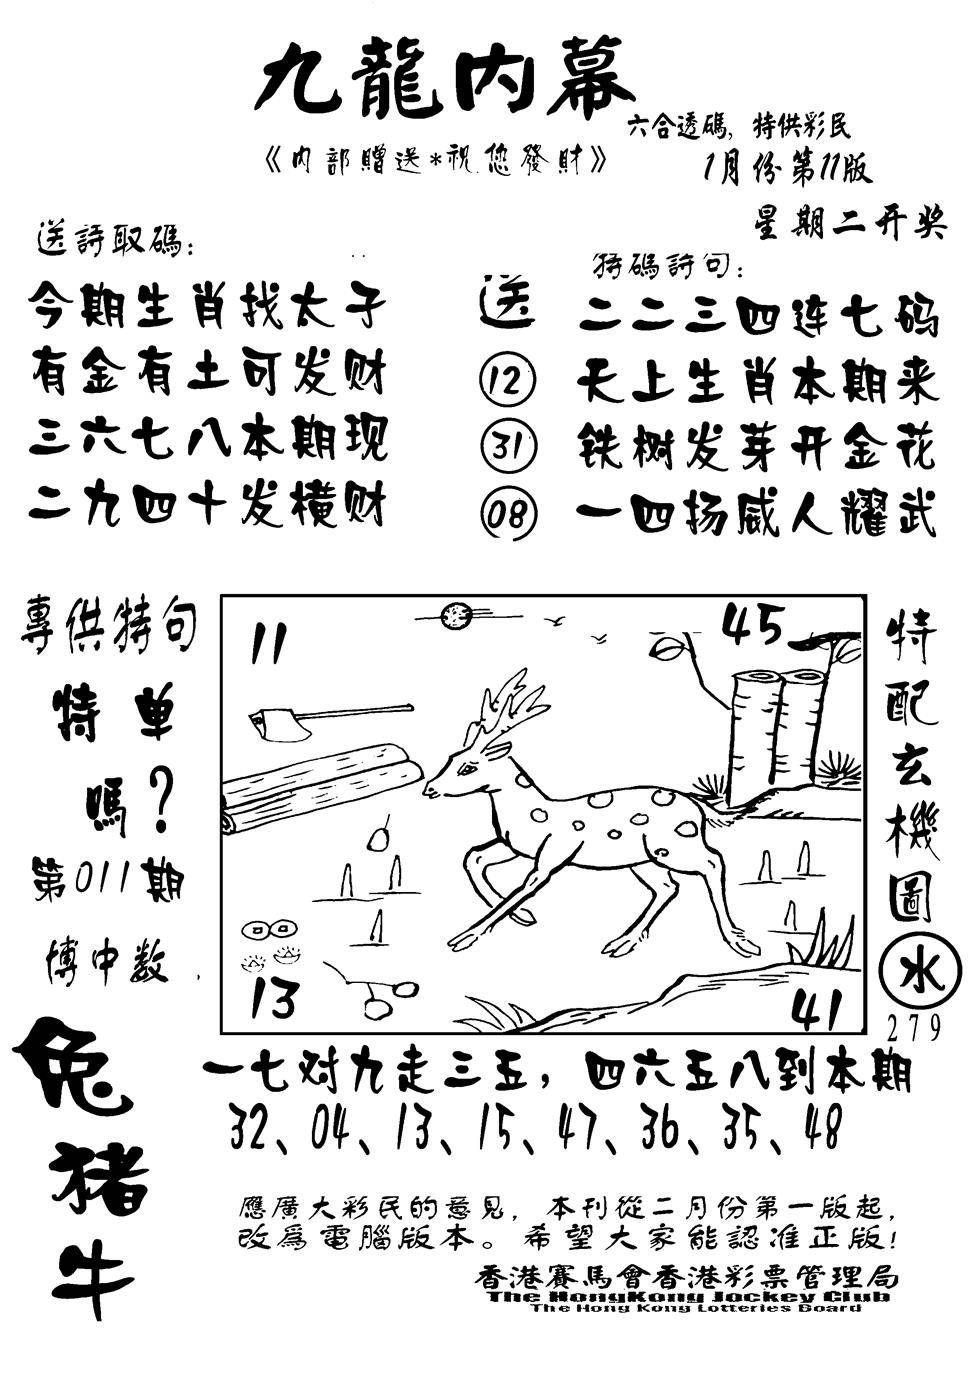 九龍内幕
六合透碼，特供彩民
《内部贈送*祝您發財》
1月份第11版
星期二开奖
送詩取碼：
今期生肖找太子
有金有土可发财
三六七八本期现
二九四十发横财
送
12
31
08
特碼詩句：
二二三四连七码
天上生肖本期来
铁树发芽开金花
一四扬威人耀武
專供特句
特单
嗎？
第011期
博中数
兔
猪
牛
11
45
13
41
特配玄機圖
水
279
一七对九走三五，四六五八到本期
32、04、13、15、47、36、35、48
應廣大彩民的意見，本刊從二月份第一版起，
改爲電腦版本。希望大家能認准正版！
香港賽馬會香港彩票管理局
The HongKong Jockey Club
The Hong Kong Lotteries Board